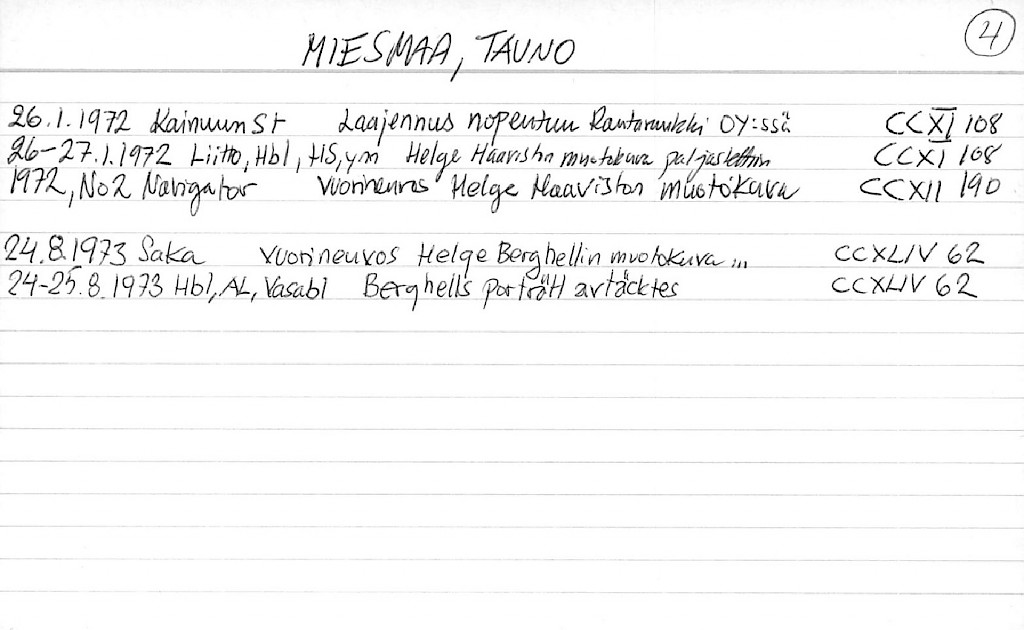 4
MIESMAA, TAUNO
26.1.1972 Kainuun St Laajennus nopeutuu Rautaruukki OY:ssä CCXI 108
26-27.1.1972 Liitto, Hbl, HS, ym Helge Haaviston muotokuva paljastettiin CCXI 108
1972, No2 Navigator Vuorineuvos Helge Haaviston muotokuva CCXII 190
24.8.1973 Saka Vuorineuvos Helge Berghellin muotokuva ... CCXLIV 62
24-25.8.1973 Hbl, AL, Vasabl Berghells porträtt avtäcktes CCXLIV 62